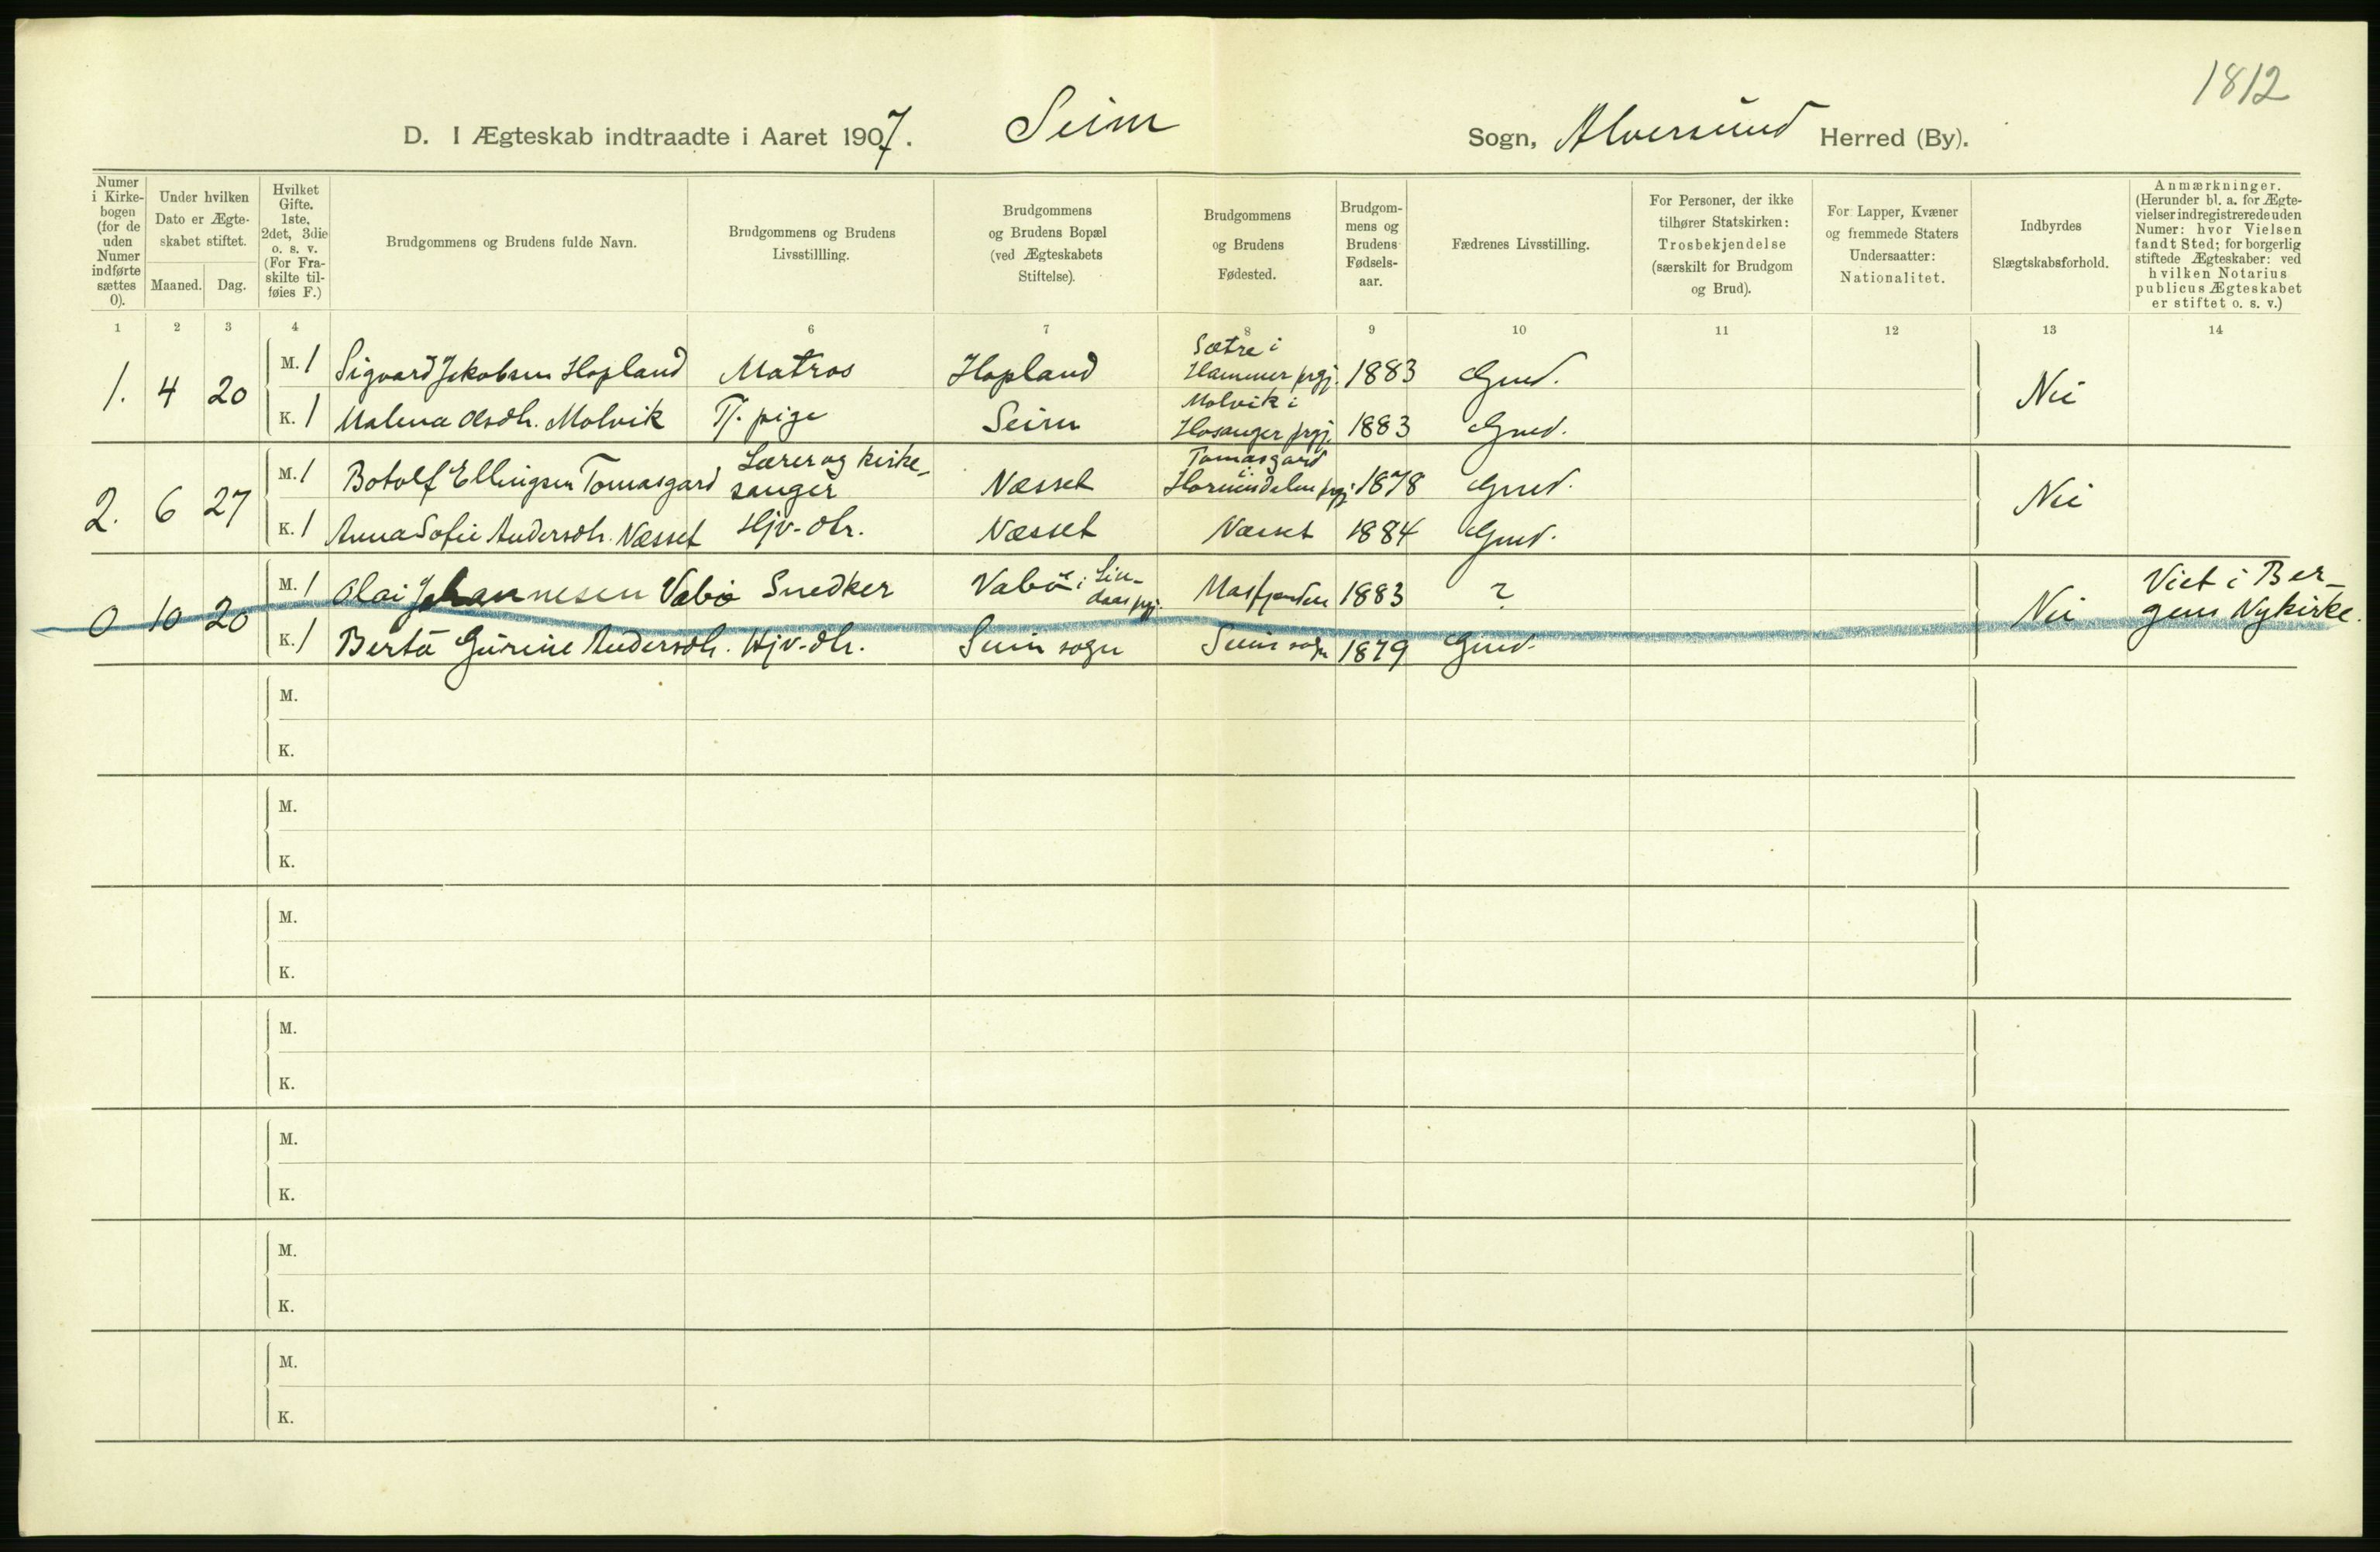 1812
D. I Ægteskab indtraadte i Aaret 1907. Seim Sogn, Alversund Herred (By).
Numer i Kirkebogen (for de uden Numer indførte sættes 0).
Under hvilken Dato er Ægteskabet stiftet.
Maaned. Dag.
Hvilket Gifte. 1ste, 2det, 3die o. s. v. (For Fraskilte tilføies F.)
Brudgommens og Brudens fulde Navn.
Brudgommens og Brudens Livsstillling.
Brudgommens og Brudens Bopæl (ved Ægteskabets Stiftelse).
Brudgommens og Brudens Fødested.
Brudgommens og Brudens Fødselsaar.
Fædrenes Livsstilling.
For Personer, der ikke tilhører Statskirken: Trosbekjendelse (særskilt for Brudgom og Brud).
For Lapper, Kvæner og fremmede Staters Undersaatter: Nationalitet.
Indbyrdes Slægtskabsforhold.
Anmærkninger. (Herunder bl. a. for Ægtevielser indregistrerede uden Numer: hvor Vielsen fandt Sted; for borgerlig stiftede Ægteskaber: ved hvilken Notarius publicus Ægteskabet er stiftet o. s. v.)
1 2 3 4 6 7 8 9 10 11 12 13 14
1. 4 20 M. 1 Sigvard Jakobsen Hopland Matros Hopland Sætre i Hammer prgj. 1883 Gmd. Nei
K. 1 Malena Olsdtr. Molvik Tj. pige Seim Molvik i Hosanger prgj. 1883 Gmd.
2. 6 27 M. 1 Botolf Ellingsen Tomasgard Lærer og kirkesanger Næsset Tomasgard i Hornindalen prgj. 1878 Gmd. Nei
K. 1 Anna Sofie Andersdtr. Næsset Hjv. dtr. Næsset Næsset 1884 Gmd.
0 10 20 M. 1 Olai Johannesen Vabø Snedker Vabø i Lindaas prgj. Masfjorden 1883 ? Nei Viet i Bergens Nykirke.
K. 1 Berta Gurine Andersdtr. Hjv. dtr. Seim sogn Seim sogn 1879 Gmd.
M.
K.
M.
K.
M.
K.
M.
K.
M.
K.
M.
K.
M.
K.